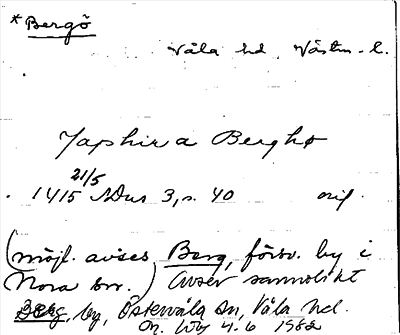 * Bergö
Våla hd, Västm. l.
Japhir a Berghø
21/5
1415 SDns 3, s. 40 orig.
(möjl. avses Berg, försv. by i
Nora sn.) Avser sannolikt
Berg, by, Östervåla sn, Våla hd.
4.6 1982